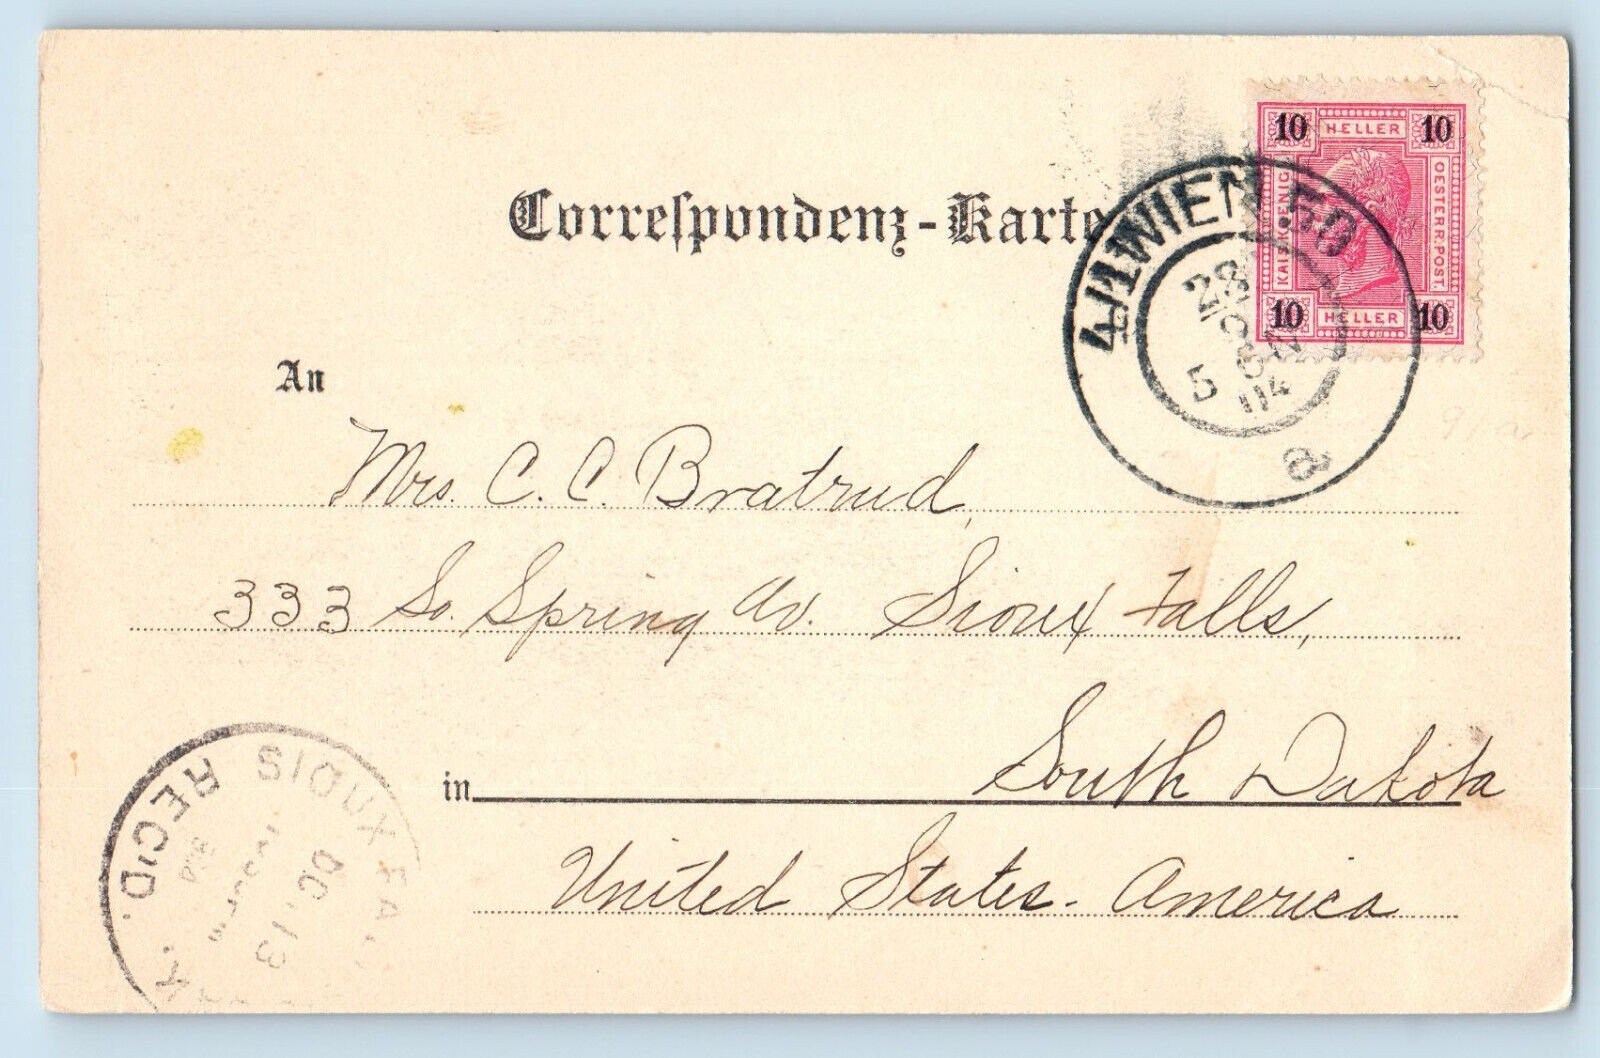 Correspondenz-Karte
10 HELLER 10
KAIS. KOENIGL. OESTERR. POST.
10 HELLER 10
4/1 WIEN 50
5
a
An
Mrs. C. C. Bratrud,
333 So. Spring Av. Sioux Falls,
in South Dakota
United States. America
SIOUX FA
DC 13
REC'D.